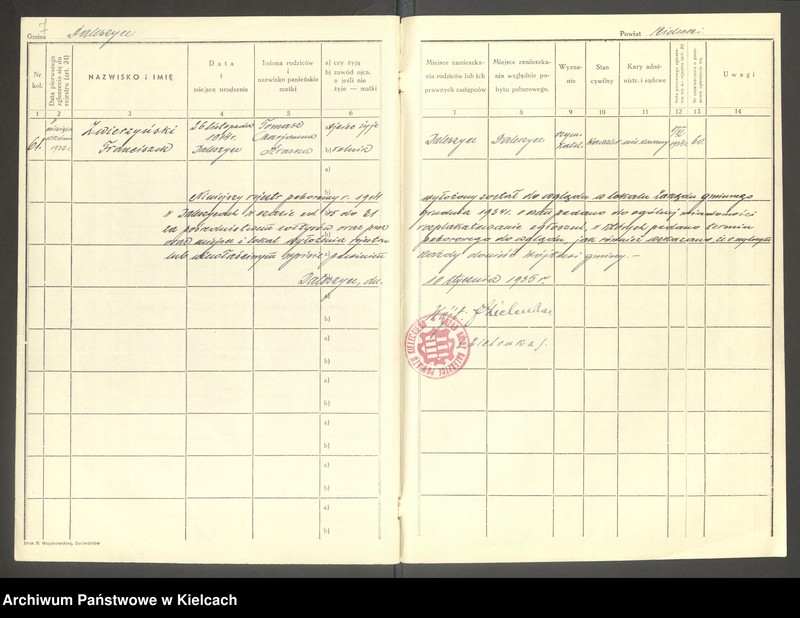 7
Gmina Daleszyce
Powiat Kielecki
Nr kol.
Data pierwszego zgłoszenia się do rejestru (art. 24)
NAZWISKO i IMIĘ
Data i miejsce urodzenia
Imiona rodziców i nazwisko panieńskie matki
a) czy żyją b) zawód ojca, a jeśli nie żyje — matki
Miejsce zamieszkania rodziców lub ich prawnych zastępców
Miejsce zamieszkania względnie pobytu poborowego.
Wyznanie
Stan cywilny
Kary administr. i sądowe
Uwagi
1 2 3 4 5 6 7 8 9 10 11 12 13 14
61. września 1932. Zwierzyński Franciszek 26 listopada 1914r. Daleszyce Tomasz a) ojciec żyje b) rolnik Daleszyce Daleszyce rzym. katol. Kawaler nie karany 1934r. 60.
Niniejszy rejestr poborowy r. 1914 wyłożony został do wglądu w lokalu Zarządu gminnego
w Daleszycach w czasie od 15 do 21 grudnia 1934r. o czem podano do ogólnej wiadomości
za pośrednictwem sołtysów oraz przez rozplakatowanie ogłoszeń, w których podano termin
oraz miejsce i lokal wyłożenia rejestru poborowego do wglądu, jak również wskazano że o mylnym
lub każdy donieść wójtowi gminy. —
Daleszyce, dn. 10 stycznia 1935 r.
Wójt:
a)
b)
a)
b)
a)
b)
a)
b)
a)
b)
Druk R. Wojakowskiej, Suchedniów
Archiwum Państwowe w Kielcach